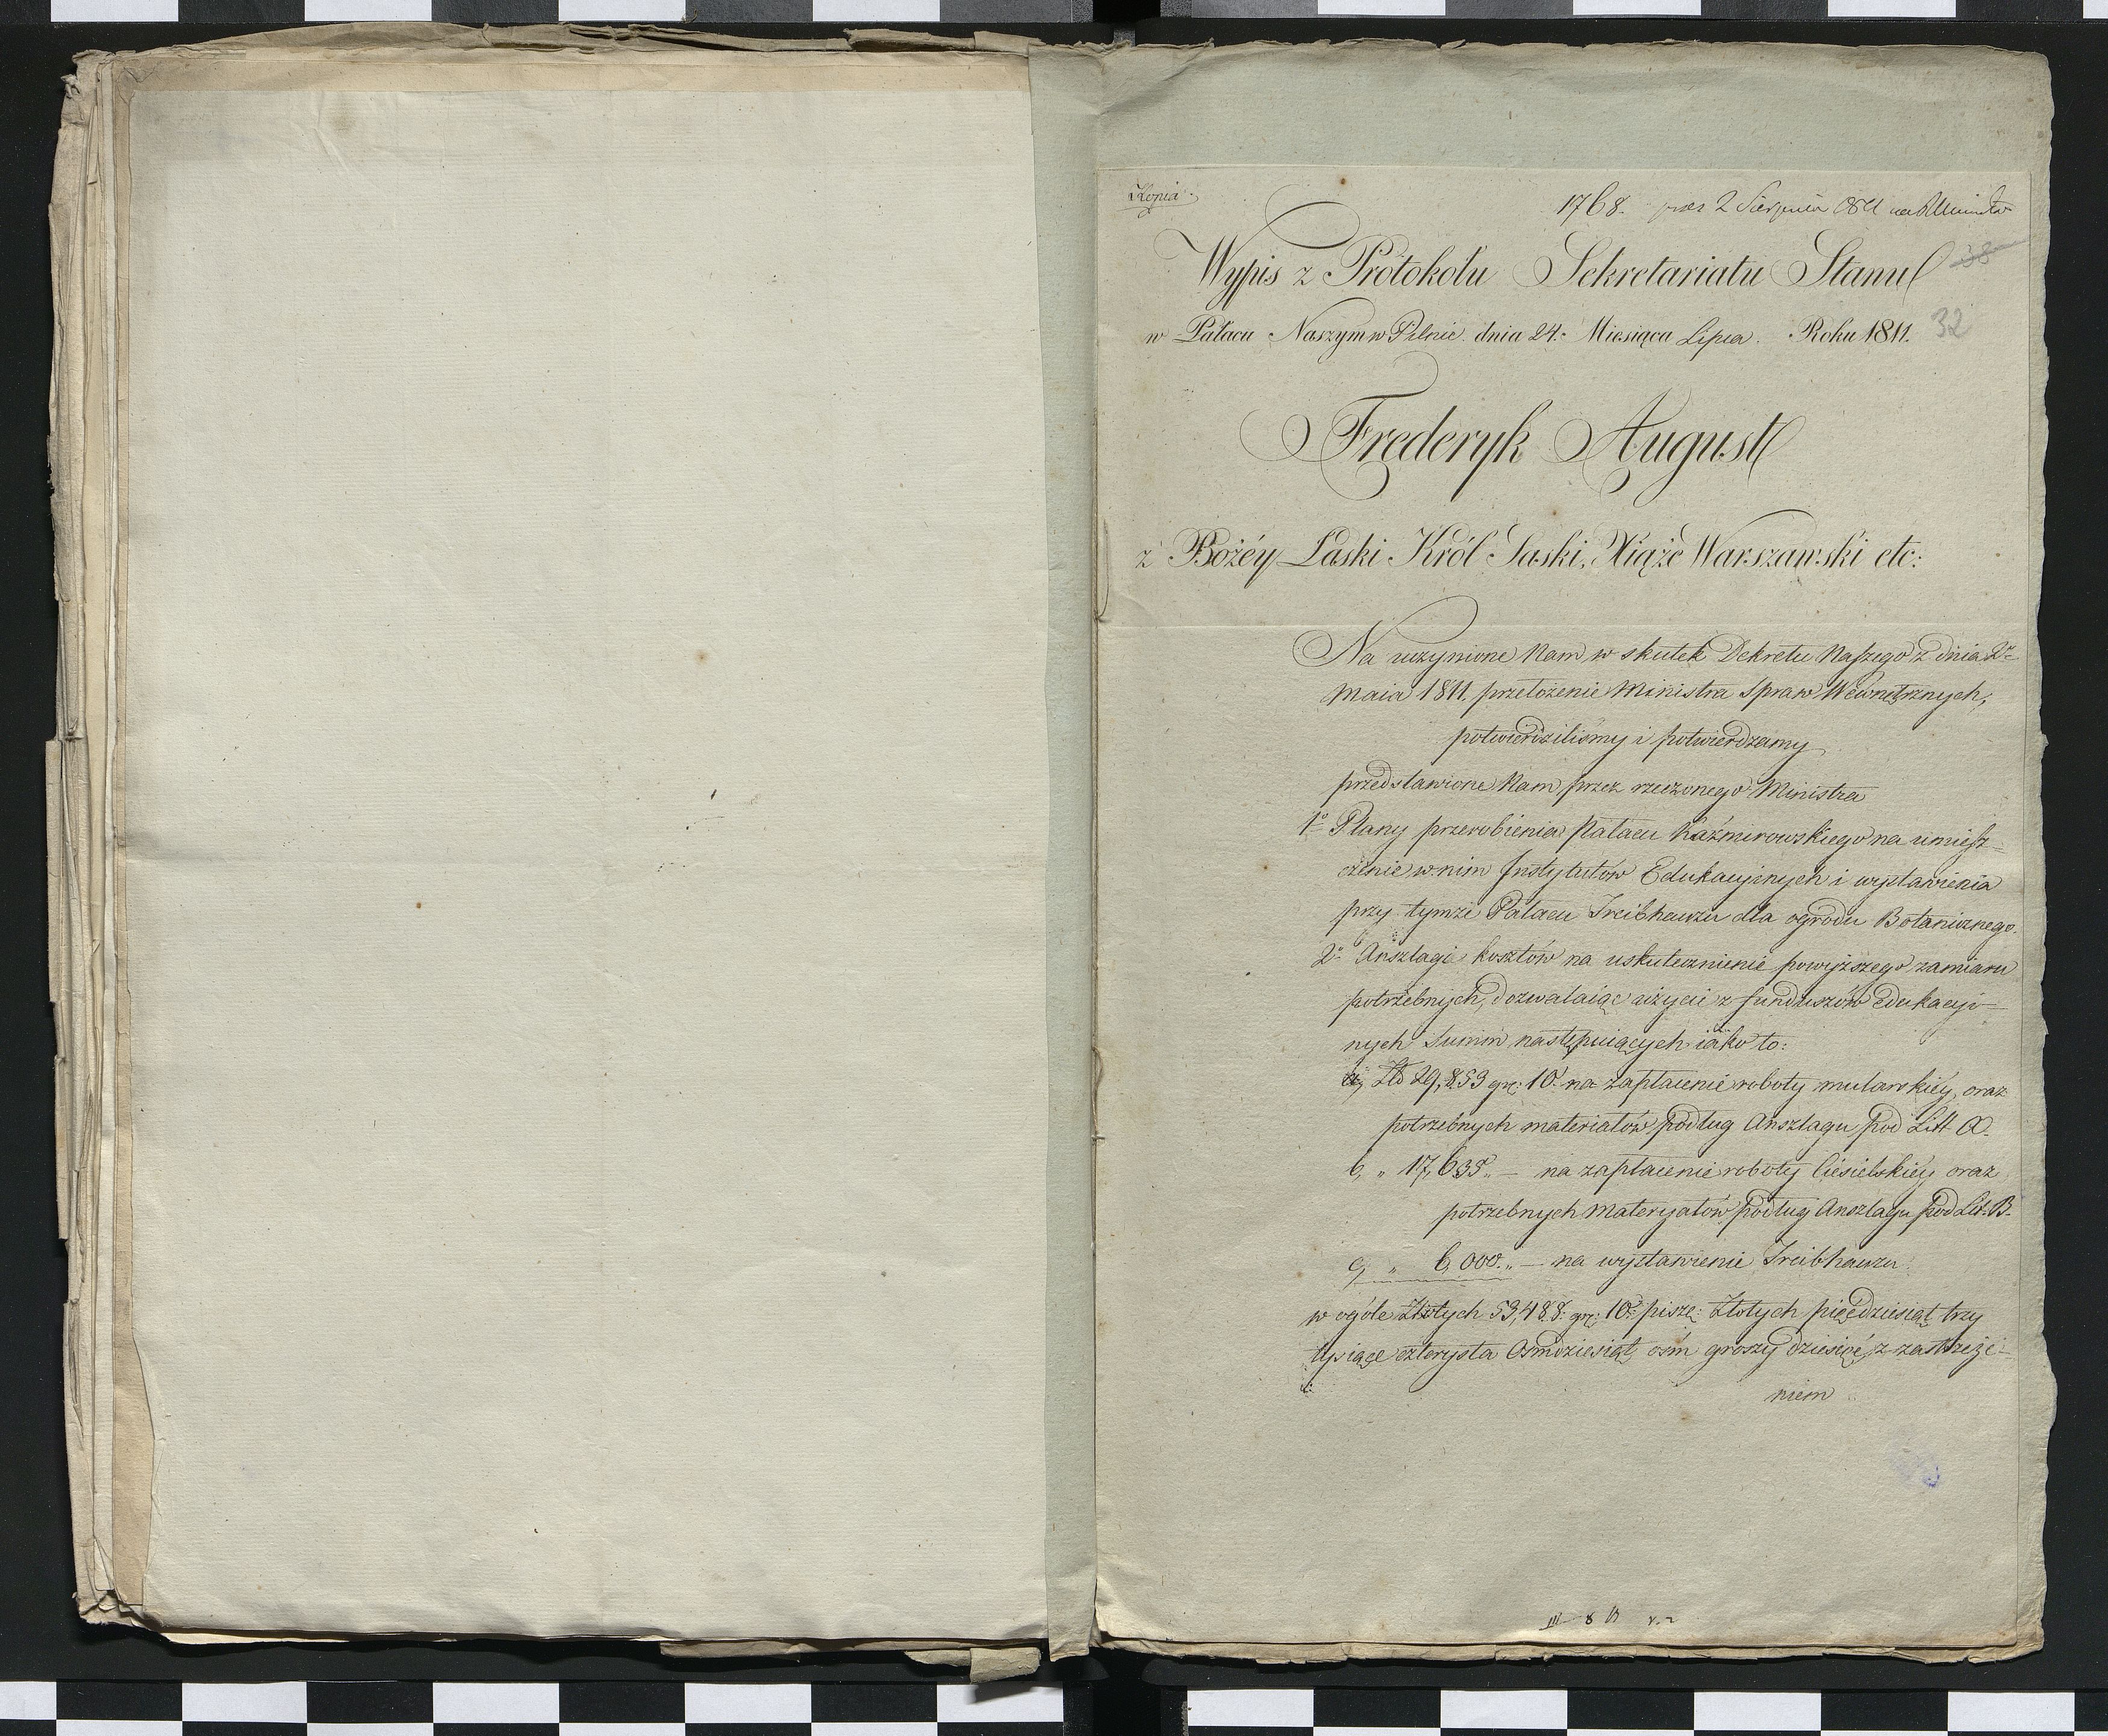 Kopia
1768. prez 2 Sierpnia 1811
Wypis z Protokołu Sekretariatu Stanu
38
w Pałacu Naszym w Pilnic dnia 24. Miesiąca Lipca. Roku 1811.
32
Frederyk August
z Bożéy Łaski Król Saski, Xiąże Warszawski etc:
Na uczynione Nam w skutek Dekretu Naszego z dnia 2º
Maia 1811. przełożenie Ministra Spraw Wewnętrznych,
potwierdziliśmy i potwierdzamy
przedstawione Nam przez rzeczonego Ministra
1º Plany przerobienia Pałacu Kaźmirowskiego na umiesz=
czenie w nim Instytutów Edukacyinych i wystawienia
przy tymże Pałacu Treibhauzu dla ogrodu Botanicznego.
2º Anszlagi kosztów na uskutecznienie powyższego zamiaru
potrzebnych, dozwalaiąc użycie z funduszów Edukacyi=
nych Summ następuiących iako to:
a, Zło 29,853 gr: 10. na zapłacenie roboty mularskiéy, oraz
potrzebnych materiałów podług Anszlagu pod Litt A.
b, " 17,635 " — na zapłacenie roboty Ciesielskiéy oraz
potrzebnych Materyałów podług Anszlagu pod Lit. B.
c, " 6,000. " — na wystawienie Treibhauzu.
w ogóle Złotych 53,488. gr: 10. piszę: Złotych pięćdziesiąt trzy
tysiące czterysta Ośmdziesiąt ośm groszy dziesięć, z zastrzeże=
niem